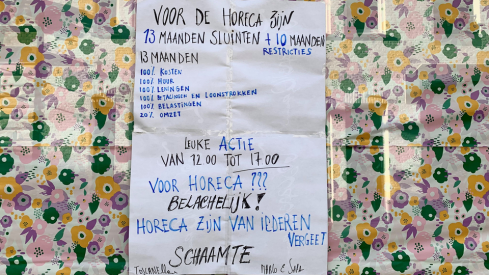 VOOR DE HORECA ZIJN
13 MAANDEN SLUINTEN + 10 MAANDEN
RESTRICTIES
13 MAANDEN
100% KOSTEN
100% HUUR
100% LENINGEN
100% BETALINGEN EN LOONSTROKKEN
100% BELASTINGEN
20% OMZET
LEUKE ACTIE
VAN 12.00 TOT 17.00
VOOR HORECA ???
BELACHELIJK!
HORECA ZIJN VAN IEDEREN
VERGEET
SCHAAMTE
TOSCANELLA